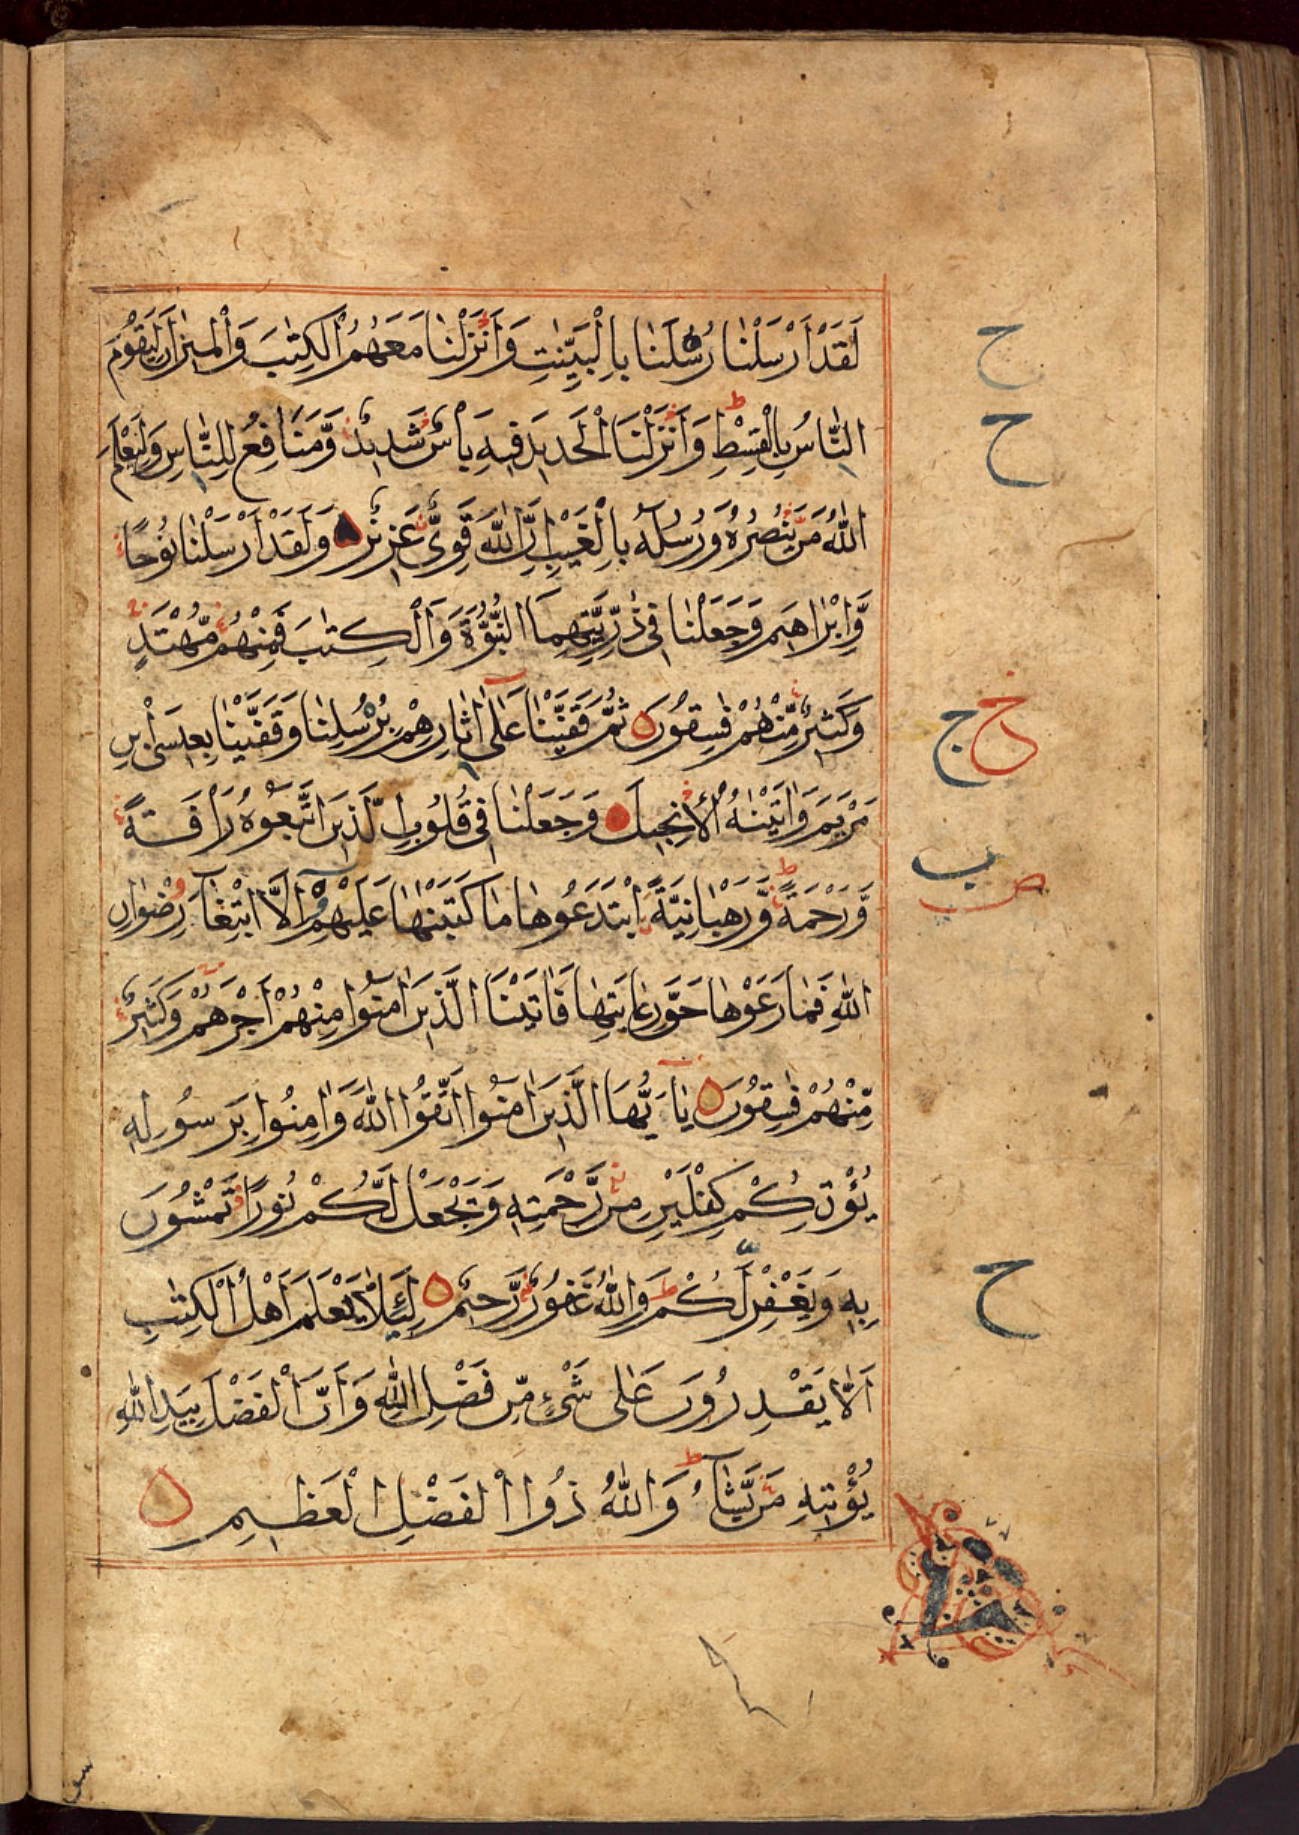 لَقَدْ اَرْسَلْنَا رُسُلَنَا بِالْبَيِّنٰتِ وَاَنْزَلْنَا مَعَهُمُ الْكِتٰبَ وَالْمِيْزَانَ لِيَقُوْمَ
ح
النَّاسُ بِالْقِسْطِ ط وَاَنْزَلْنَا الْحَدِيْدَ فِيْهِ بَاْسٌ شَدِيْدٌ وَّمَنَافِعُ لِلنَّاسِ وَلِيَعْلَمَ
ح
اللّٰهُ مَنْ يَّنْصُرُهٗ وَرُسُلَهٗ بِالْغَيْبِ اِنَّ اللّٰهَ قَوِىٌّ عَزِيْزٌ وَلَقَدْ اَرْسَلْنَا نُوْحًا
وَّاِبْرٰاهِيْمَ وَجَعَلْنَا فِىْ ذُرِّيَّتِهِمَا النُّبُوَّةَ وَالْكِتٰبَ فَمِنْهُمْ مُّهْتَدٍ
وَكَثِيْرٌ مِّنْهُمْ فٰسِقُوْنَ ثُمَّ قَفَّيْنَا عَلٰٓى اٰثَارِهِمْ بِرُسُلِنَا وَقَفَّيْنَا بِعِيْسَى ابْنِ
خ ج
مَرْيَمَ وَاٰتَيْنٰهُ الْاِنْجِيْلَ وَجَعَلْنَا فِىْ قُلُوْبِ الَّذِيْنَ اتَّبَعُوْهُ رَاْفَةً
ب
وَّرَحْمَةً ط وَّرَهْبَانِيَّةً ابْتَدَعُوْهَا مَا كَتَبْنٰهَا عَلَيْهِمْ اِلَّا ابْتِغَآءَ رِضْوَانِ
ص
اللّٰهِ فَمَا رَعَوْهَا حَقَّ رِعَايَتِهَا فَاٰتَيْنَا الَّذِيْنَ اٰمَنُوْا مِنْهُمْ اَجْرَهُمْ وَكَثِيْرٌ
مِّنْهُمْ فٰسِقُوْنَ يٰٓاَيُّهَا الَّذِيْنَ اٰمَنُوا اتَّقُوا اللّٰهَ وَاٰمِنُوْا بِرَسُوْلِهٖ
يُؤْتِكُمْ كِفْلَيْنِ مِنْ رَّحْمَتِهٖ وَيَجْعَلْ لَّكُمْ نُوْرًا تَمْشُوْنَ
بِهٖ وَيَغْفِرْ لَكُمْ ط وَاللّٰهُ غَفُوْرٌ رَّحِيْمٌ لِئَلَّا يَعْلَمَ اَهْلُ الْكِتٰبِ
ح
اَلَّا يَقْدِرُوْنَ عَلٰى شَىْءٍ مِّنْ فَضْلِ اللّٰهِ وَاَنَّ الْفَضْلَ بِيَدِ اللّٰهِ
يُؤْتِيْهِ مَنْ يَّشَآءُ ط وَاللّٰهُ ذُوا الْفَضْلِ الْعَظِيْمِ